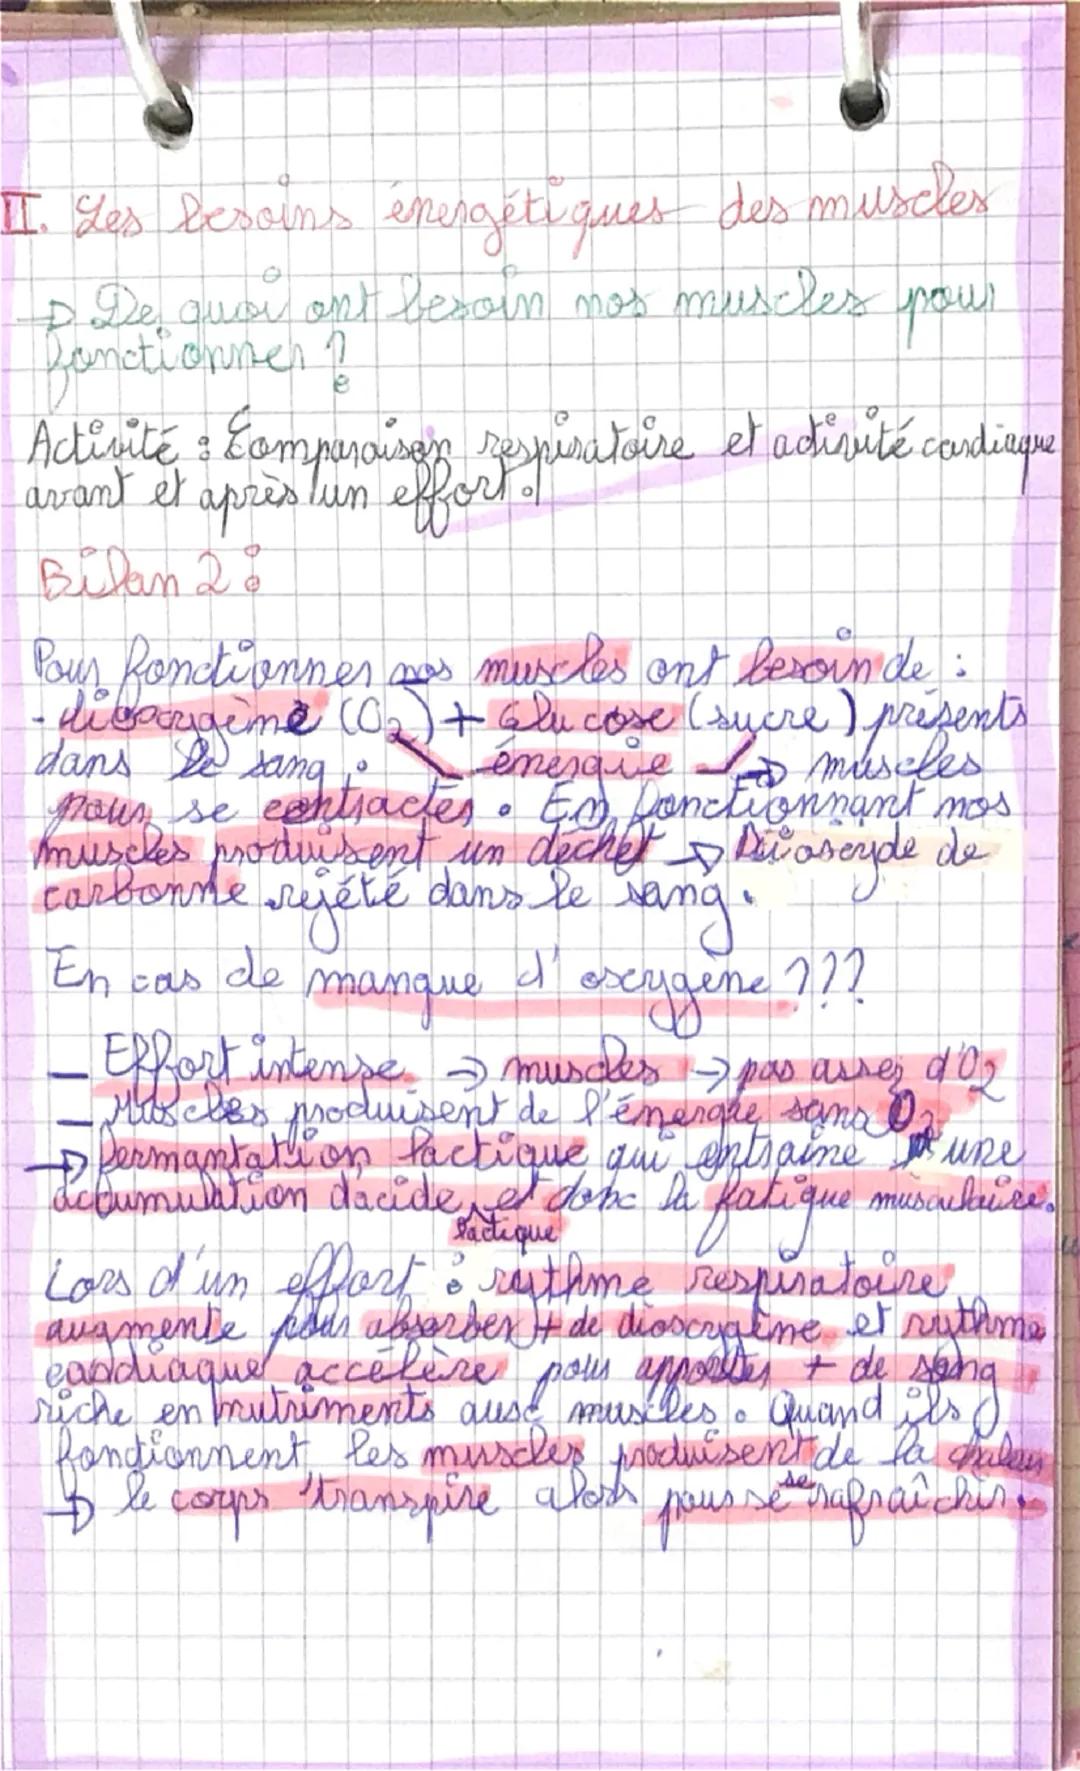 II. Les besoins énergétiques des muscles
→ De quoi ont besoin nos muscles pour
fonctionner ?
Activité : Comparaison respiratoire et activité cardiaque
avant et après un effort.
Bilan 2 :
Pour fonctionner nos muscles ont besoin de :
- dioxygène (O2) + Glucose (sucre) présents
dans le sang. énergie → muscles
pour se contracter. En fonctionnant nos
muscles produisent un déchet → Dioxyde de
carbonne rejété dans le sang.
En cas de manque d'oxygène ???
— Effort intense → muscles → pas assez d'O2
— Muscles produisent de l'énergie sans O2
→ fermantation lactique qui entraîne une
accumulation d'acide et donc la fatigue musculaire.
lactique
Lors d'un effort : rythme respiratoire
augmente pour absorber + de dioxygène et rythme
cardiaque accélère pour apporter + de sang
riche en nutriments aux muscles. Quand ils
fonctionnent, les muscles produisent de la chaleur
→ le corps transpire alors pour se rafraîchir.